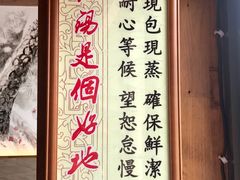 現包現蒸 確保鮮潔
耐心等候 望恕怠慢
是個好地